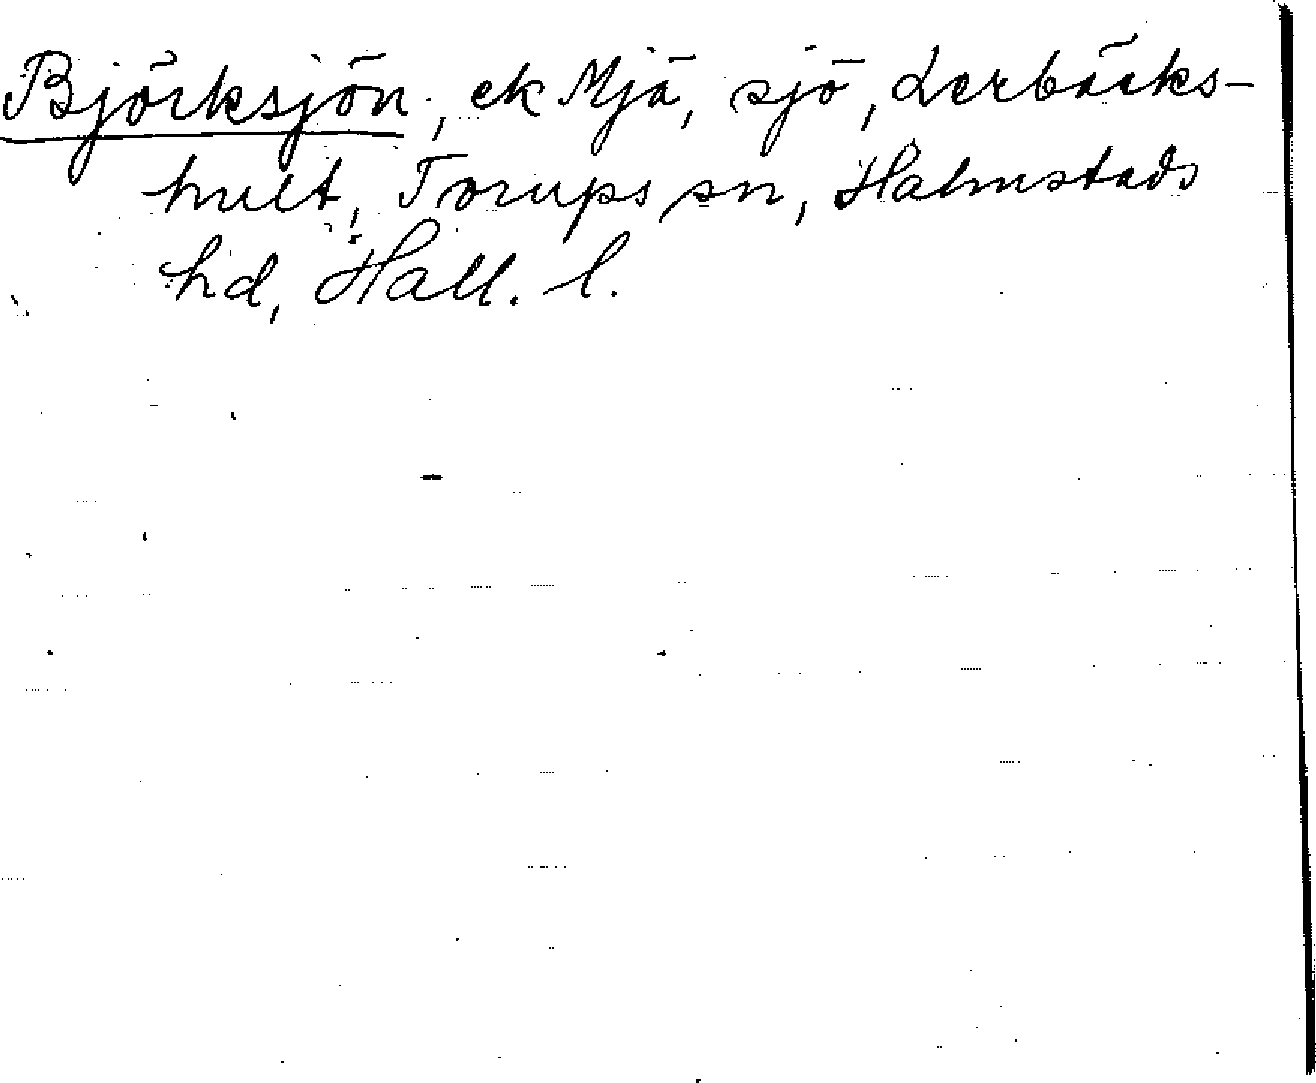 Björksjön, ek Mjä, sjö, Lerbäcks-
hult, Torups sn, Halmstads
hd, Hall. l.